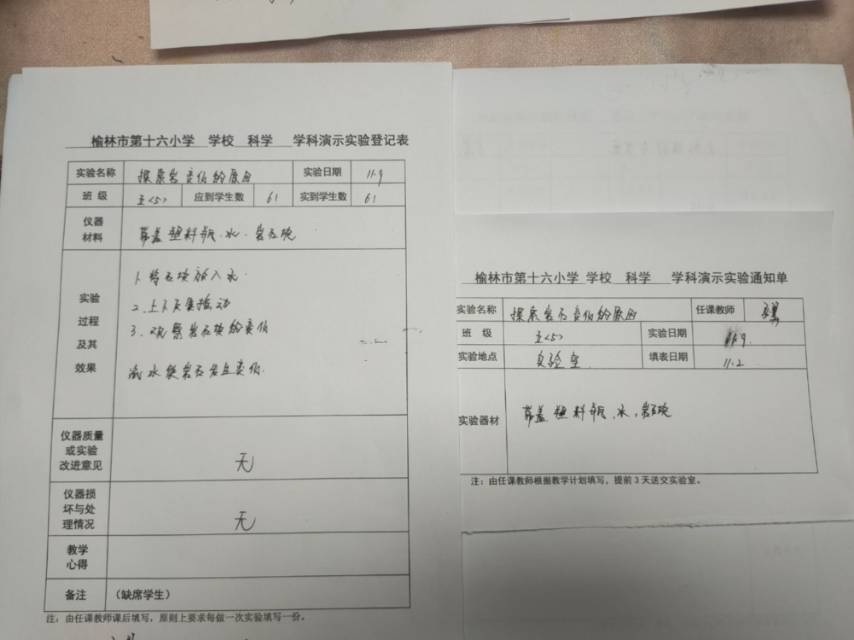 榆林市第十六小学 学校 科学 学科演示实验登记表
实验名称 探索岩石变化的原因 实验日期 11.9
班 级 五<5> 应到学生数 61 实到学生数 61
仪器
材料
带盖塑料瓶、水、岩石块
实验
过程
及其
效果
1.将石块放入水
2.上下
3.观察岩石块的变化
流水使岩石发生变化
仪器质量
或实验
改进意见
无
仪器损
坏与处
理情况
无
教学
心得
备注 (缺席学生)
注:由任课教师课后填写,原则上要求每做一次实验填写一份。
榆林市第十六小学 学校 科学 学科演示实验通知单
实验名称 探索岩石变化的原因 任课教师
班 级 五<5> 实验日期 11.9
实验地点 实验室 填表日期 11.2
实验器材 带盖塑料瓶、水、岩石块
注:由任课教师根据教学计划填写,提前3天送交实验室。